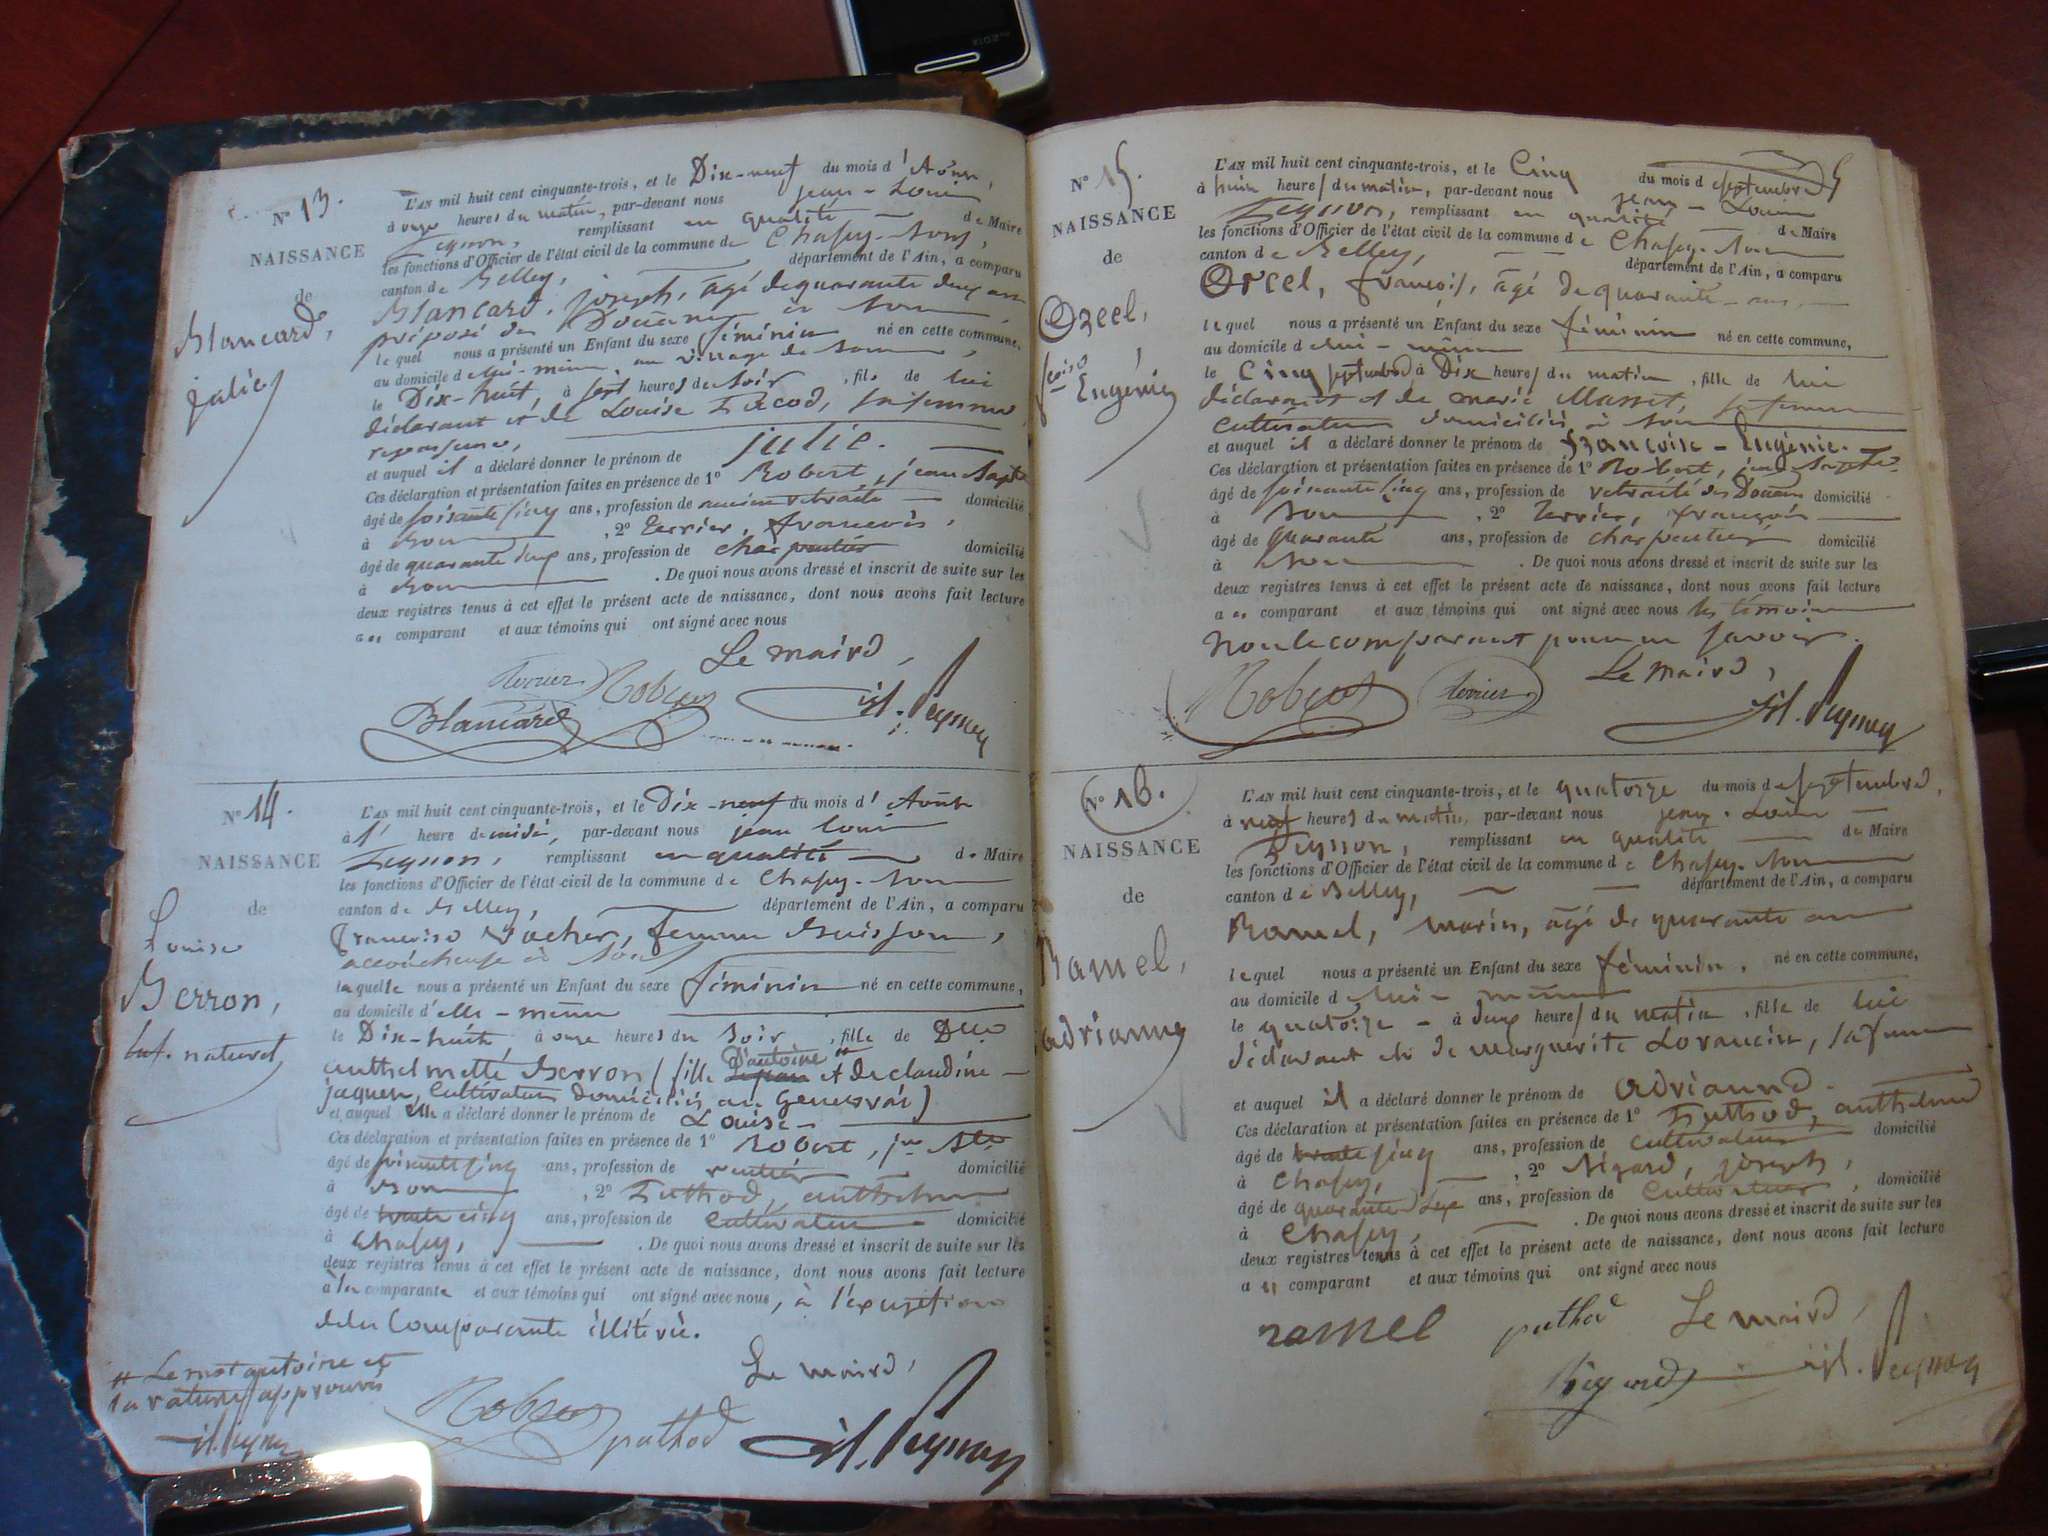 N° 13.
NAISSANCE
de
Blancard,
julie
L'AN mil huit cent cinquante-trois, et le Dix-neuf du mois d'Août,
à onze heures du matin, par-devant nous jean-Louis
remplissant en qualité de Maire
les fonctions d'Officier de l'état civil de la commune de Chasey-bons,
canton de Belley, département de l'Ain, a comparu
Blancard, joseph, âgé de quarante deux ans
préposé des Douanes à bons
lequel nous a présenté un Enfant du sexe féminin né en cette commune,
au domicile de lui-même, au village de bons,
le Dix-huit, à sept heures du soir, fille de lui
déclarant et de Louise sa femme
et auquel il a déclaré donner le prénom de julie.
Ces déclaration et présentation faites en présence de 1° Robert, jean Bapte
âgé de soixante cinq ans, profession de ancien retraité domicilié
à bons, 2° Terrier, françois,
âgé de quarante deux ans, profession de charpentier domicilié
à bons. De quoi nous avons dressé et inscrit de suite sur les
deux registres tenus à cet effet le présent acte de naissance, dont nous avons fait lecture
au comparant et aux témoins qui ont signé avec nous
Le maire,
terrier Robert
Blancard jl. Peysson
N° 14.
NAISSANCE
de
Louise
Berron,
enf. naturel
L'AN mil huit cent cinquante-trois, et le Dix-neuf du mois d'Août
à 1 heure de midi, par-devant nous jean louis
Peysson, remplissant en qualité de Maire
les fonctions d'Officier de l'état civil de la commune de Chasey-bons
canton de Belley, département de l'Ain, a comparu
françoise Vacher, femme Buisson,
accoucheuse à bons
laquelle nous a présenté un Enfant du sexe féminin né en cette commune,
au domicile d'elle-même
le Dix-huit à onze heures du soir, fille de Dlle
anthelmette Berron (fille D'antoine # et de claudine
jaquen, cultivateurs domiciliés au Genevrai)
et auquel elle a déclaré donner le prénom de Louise
Ces déclaration et présentation faites en présence de 1° Robert, jn Bte
âgé de soixante cinq ans, profession de rentier domicilié
à bons, 2° Puthod, anthelme
âgé de trente cinq ans, profession de cultivateur domicilié
à Chasey, . De quoi nous avons dressé et inscrit de suite sur les
deux registres tenus à cet effet le présent acte de naissance, dont nous avons fait lecture
à la comparante et aux témoins qui ont signé avec nous, à l'exception
de la Comparante illitérée.
# Le mot antoine et
la rature approuvés
jl. Peysson
Le maire,
Robert puthod jl. Peysson
N° 15.
NAISSANCE
de
Orcel,
Eugénie
5
L'AN mil huit cent cinquante-trois, et le Cinq du mois de septembre
à heures du matin, par-devant nous jean-Louis
Peysson, remplissant en qualité de Maire
les fonctions d'Officier de l'état civil de la commune de Chasey-bons
canton de Belley, département de l'Ain, a comparu
Orcel, françois, âgé de quarante ans,
lequel nous a présenté un Enfant du sexe féminin né en cette commune,
au domicile de lui-même
le Cinq septembre à Dix heures du matin, fille de lui
déclarant et de marie Masset, sa femme
cultivateurs domiciliés à bons
et auquel il a déclaré donner le prénom de françoise-Eugénie.
Ces déclaration et présentation faites en présence de 1° Robert, jean Bapte
âgé de soixante cinq ans, profession de retraité des Douanes domicilié
à bons, 2° terrier, françois
âgé de quarante ans, profession de charpentier domicilié
à bons. De quoi nous avons dressé et inscrit de suite sur les
deux registres tenus à cet effet le présent acte de naissance, dont nous avons fait lecture
au comparant et aux témoins qui ont signé avec nous les témoins
non le comparant pour ne savoir.
Le maire,
Robert terrier jl. Peysson
N° 16.
NAISSANCE
de
Ramel,
adrianne
L'AN mil huit cent cinquante-trois, et le quatorze du mois de septembre,
à neuf heures du matin, par-devant nous jean-Louis
Peysson, remplissant en qualité de Maire
les fonctions d'Officier de l'état civil de la commune de Chasey-bons
canton de Belley, département de l'Ain, a comparu
Ramel, marin, âgé de quarante ans
lequel nous a présenté un Enfant du sexe féminin, né en cette commune,
au domicile de lui-même
le quatorze à deux heures du matin, fille de lui
déclarant et de marguerite sa femme
et auquel il a déclaré donner le prénom de adrianne.
Ces déclaration et présentation faites en présence de 1° Puthod, anthelme
âgé de trente cinq ans, profession de cultivateur domicilié
à Chasey, 2° joseph,
âgé de quarante ans, profession de cultivateur, domicilié
à Chasey, . De quoi nous avons dressé et inscrit de suite sur les
deux registres tenus à cet effet le présent acte de naissance, dont nous avons fait lecture
au comparant et aux témoins qui ont signé avec nous
ramel puthod Le maire,
jl. Peysson